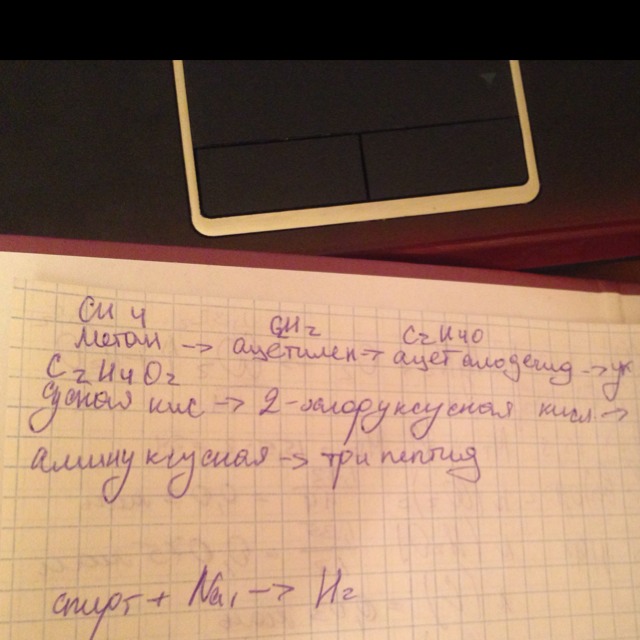 CH4
C2H2
C2H4O
метан → ацетилен → ацетальдегид → ук
C2H4O2
сусная кис → 2-хлоруксусная кисл →
аминуксусная → трипептид
спирт + Na, → H2